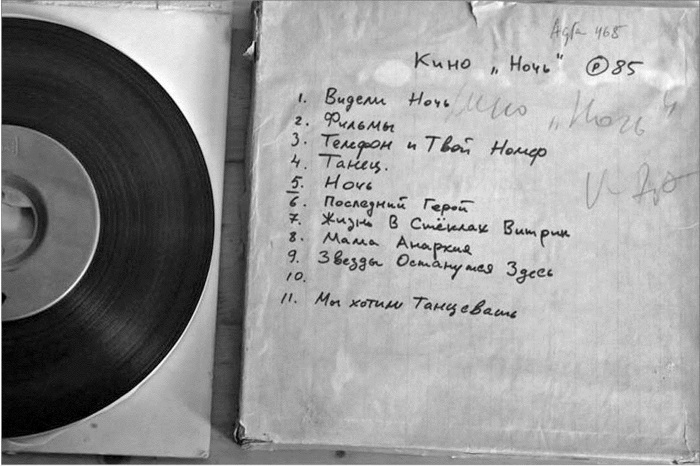 Agfa 468
Кино „Ночь" ℗85
1. Видели Ночь
Кино „Ночь"
2. Фильмы
3. Телефон и Твой Номер
4. Танец.
5. Ночь
6. Последний Герой
7. Жизнь в Стёклах Витрин
8. Мама Анархия
9. Звезды Останутся Здесь
10.
11. Мы хотим Танцевать